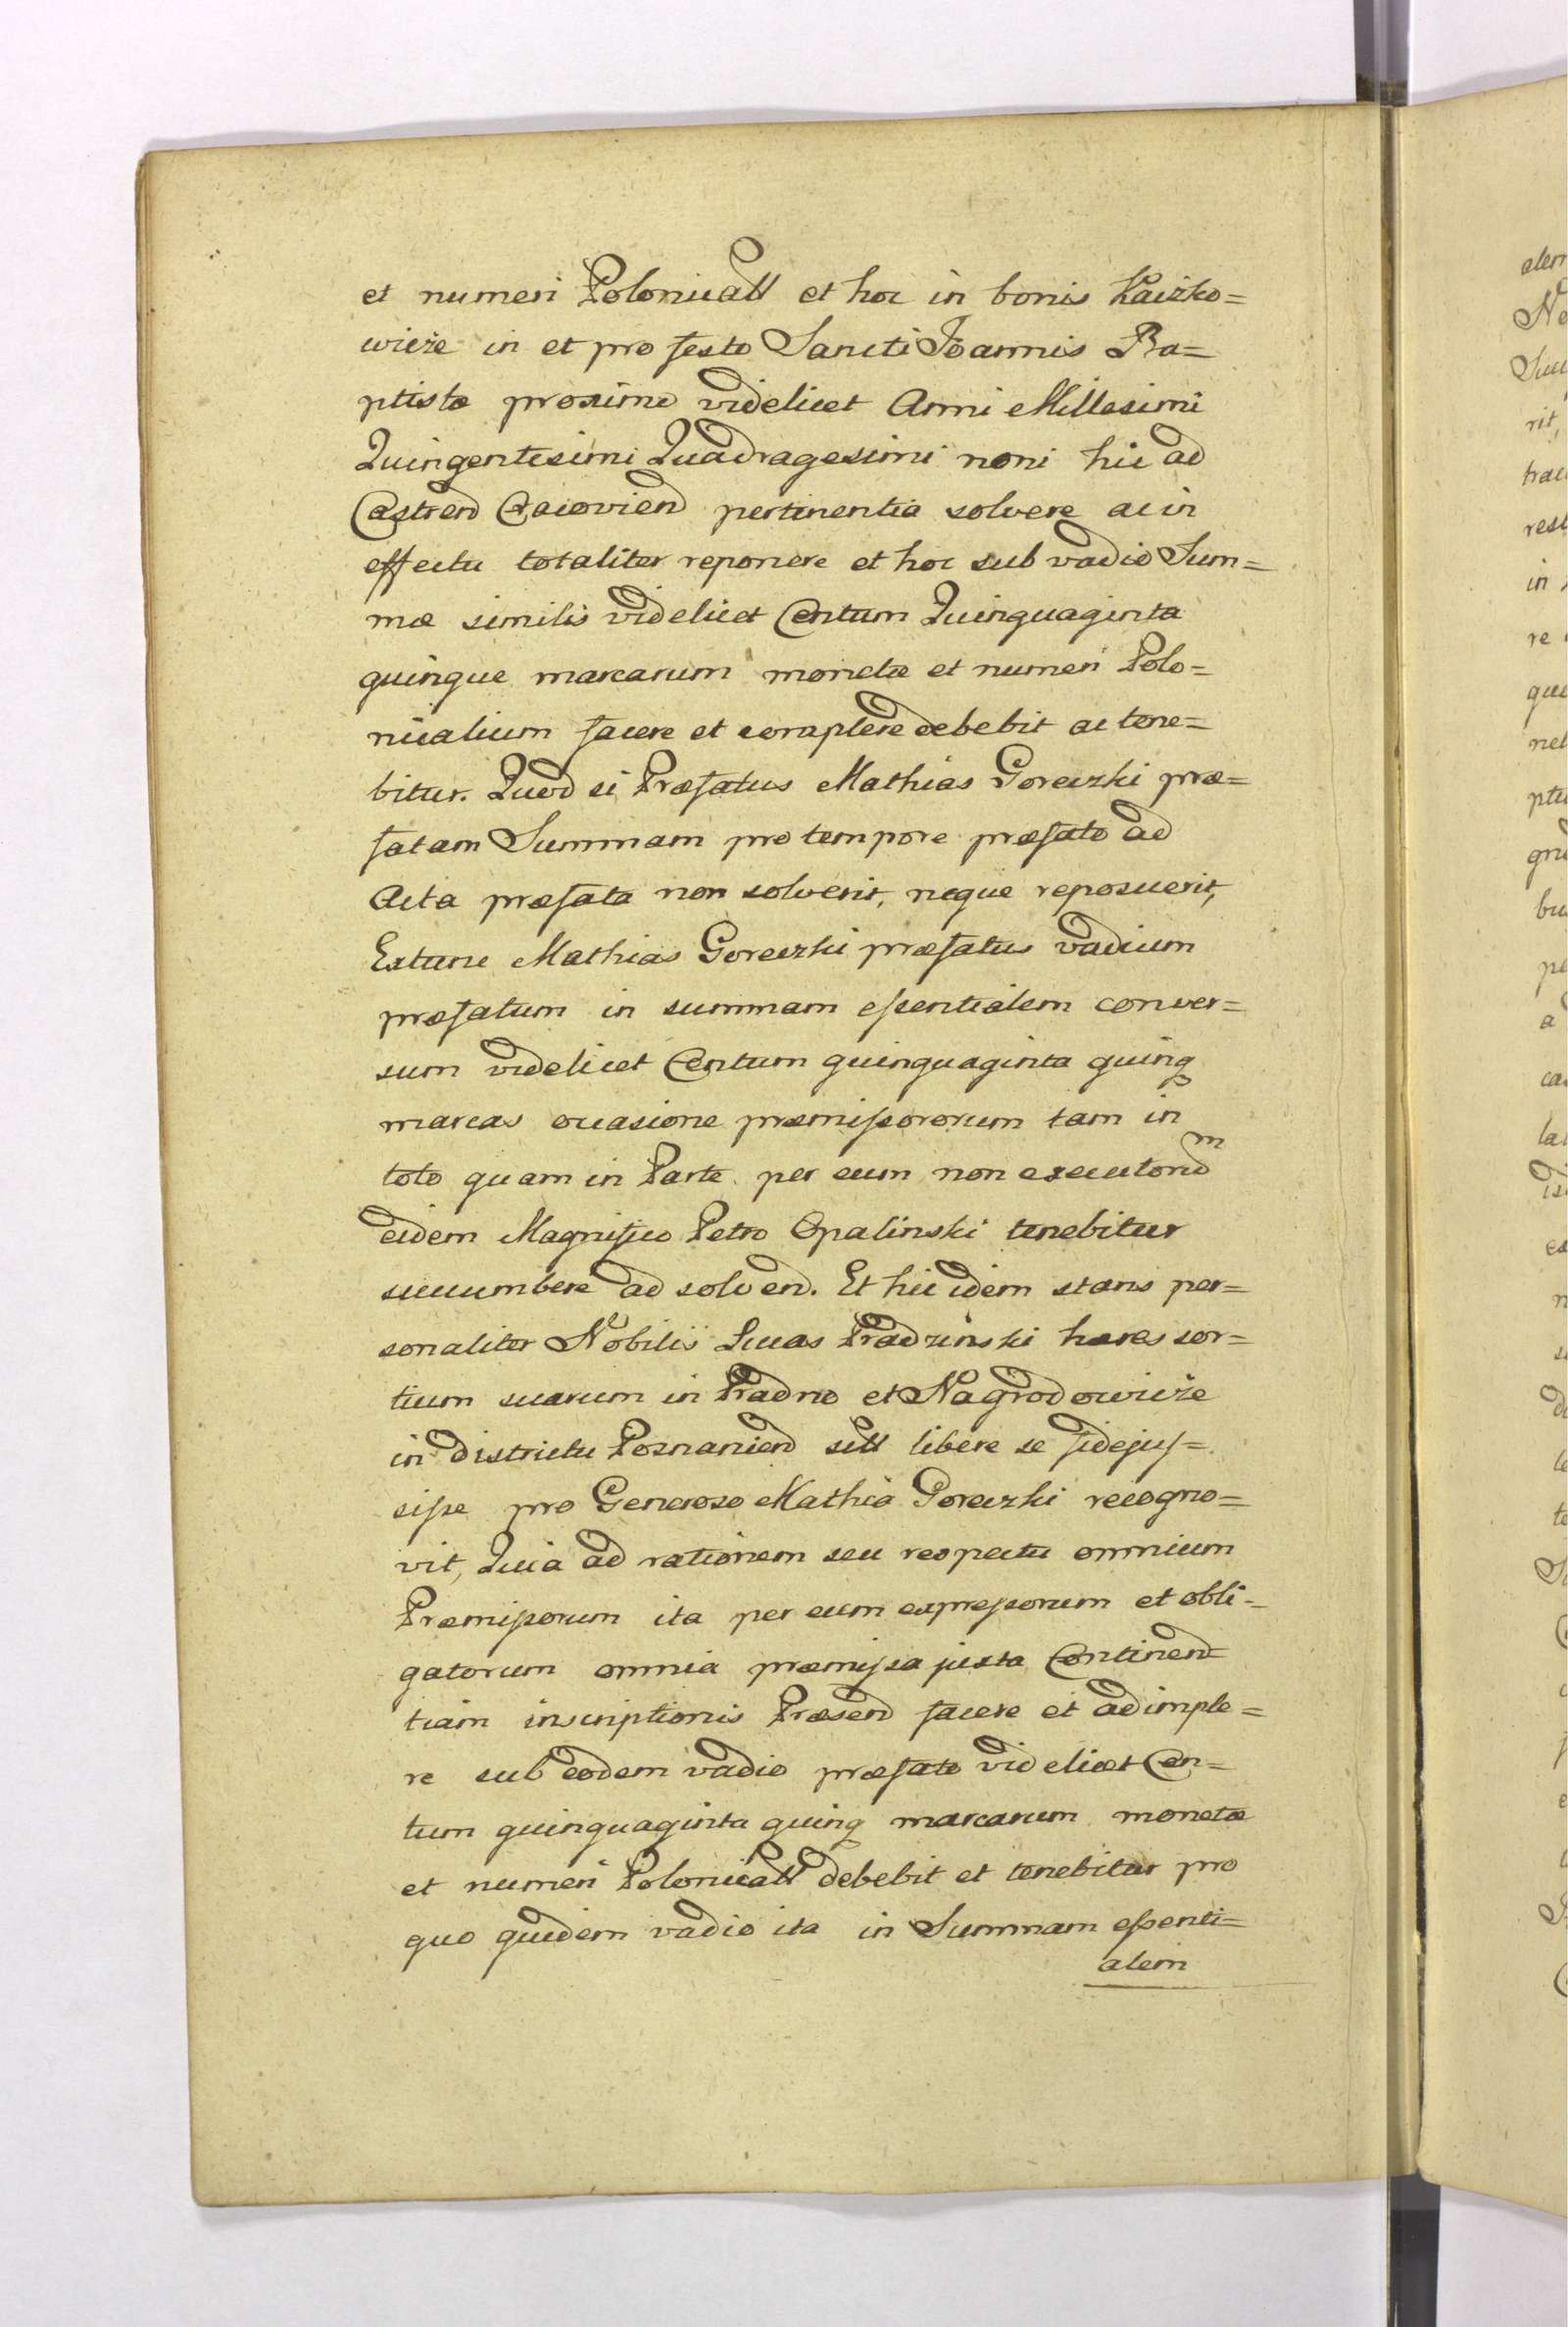 et numeri Polonicall et hoc in bonis Kaizko=
wicze in et pro festo Sancti Joannis Ba=
ptistæ proxime videlicet Anni Millesimi
Quingentesimi Quadragesimi noni hic ad
Castrend Cracoviend pertinentia solvere ac in
effectu totaliter reponere et hoc sub vadio Sum=
mæ similis videlicet Centum Quinquaginta
quinque marcarum monetæ et numeri Polo=
nicalium facere et complere debebit ac tene=
bitur. Quod si Præfatus Mathias Goreczki præ=
fatam Summam pro tempore præfato ad
Acta præfata non solverit, neque reposuerit,
Extunc Mathias Goreczki præfatus vadium
præfatum in summam eſsentialem conver=
sum videlicet Centum quinquaginta quinq
marcas occasione præmiſsororum tam in
toto quam in Parte per eum non executorum
eidem Magnifico Petro Opalinski tenebitur
succumbere ad solvend. Et hic idem stans per=
sonaliter Nobilis Lucas Pradzinski hæres sor=
tium suarum in Pradno et Nagrodowicze
in districtu Posnaniend sitt libere se fidejuſ=
siſse pro Generoso Mathia Goreczki recogno=
vit, Quia ad rationem seu respectu omnium
Præmiſsorum ita per eum expreſsorum et obli=
gatorum omnia præmiſsa juxta Continend
tiam inscriptionis Præsend facere et adimple=
re sub eodem vadio præfato videlicet Cen=
tum quinquaginta quinq marcarum monetæ
et numeri Polonicall debebit et tenebitur pro
quo quidem vadio ita in Summam eſsenti=
alem